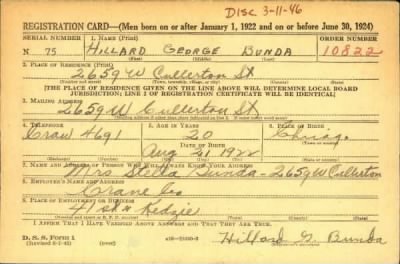 DISC 3-11-46
REGISTRATION CARD—(Men born on or after January 1, 1922 and on or before June 30, 1924)
SERIAL NUMBER 1. NAME (Print) ORDER NUMBER
N 75 HILLARD GEORGE BUNDA 10822
(First) (Middle) (Last)
2. PLACE OF RESIDENCE (Print)
2659 W Cullerton St
(Number and street) (Town, township, village, or city) (County) (State)
[THE PLACE OF RESIDENCE GIVEN ON THE LINE ABOVE WILL DETERMINE LOCAL BOARD
JURISDICTION; LINE 2 OF REGISTRATION CERTIFICATE WILL BE IDENTICAL]
3. MAILING ADDRESS
2659 W Cullerton St
4. TELEPHONE 5. AGE IN YEARS 6. PLACE OF BIRTH
Craw 4691 20 Chicago
DATE OF BIRTH
Aug 21 1922
7. NAME AND ADDRESS OF PERSON WHO WILL ALWAYS KNOW YOUR ADDRESS
Mrs Stella Bunda - 2659 W Cullerton
8. EMPLOYER'S NAME AND ADDRESS
Crane Co
9. PLACE OF EMPLOYMENT OR BUSINESS
41st & Kedzie
I AFFIRM THAT I HAVE VERIFIED ABOVE ANSWERS AND THAT THEY ARE TRUE.
D. S. S. Form 1
Hillard G. Bunda